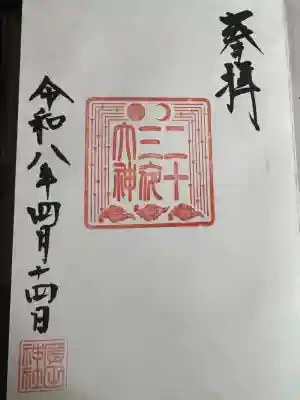 奉拝
二十
三夜
大神
令和八年四月十四日
神社